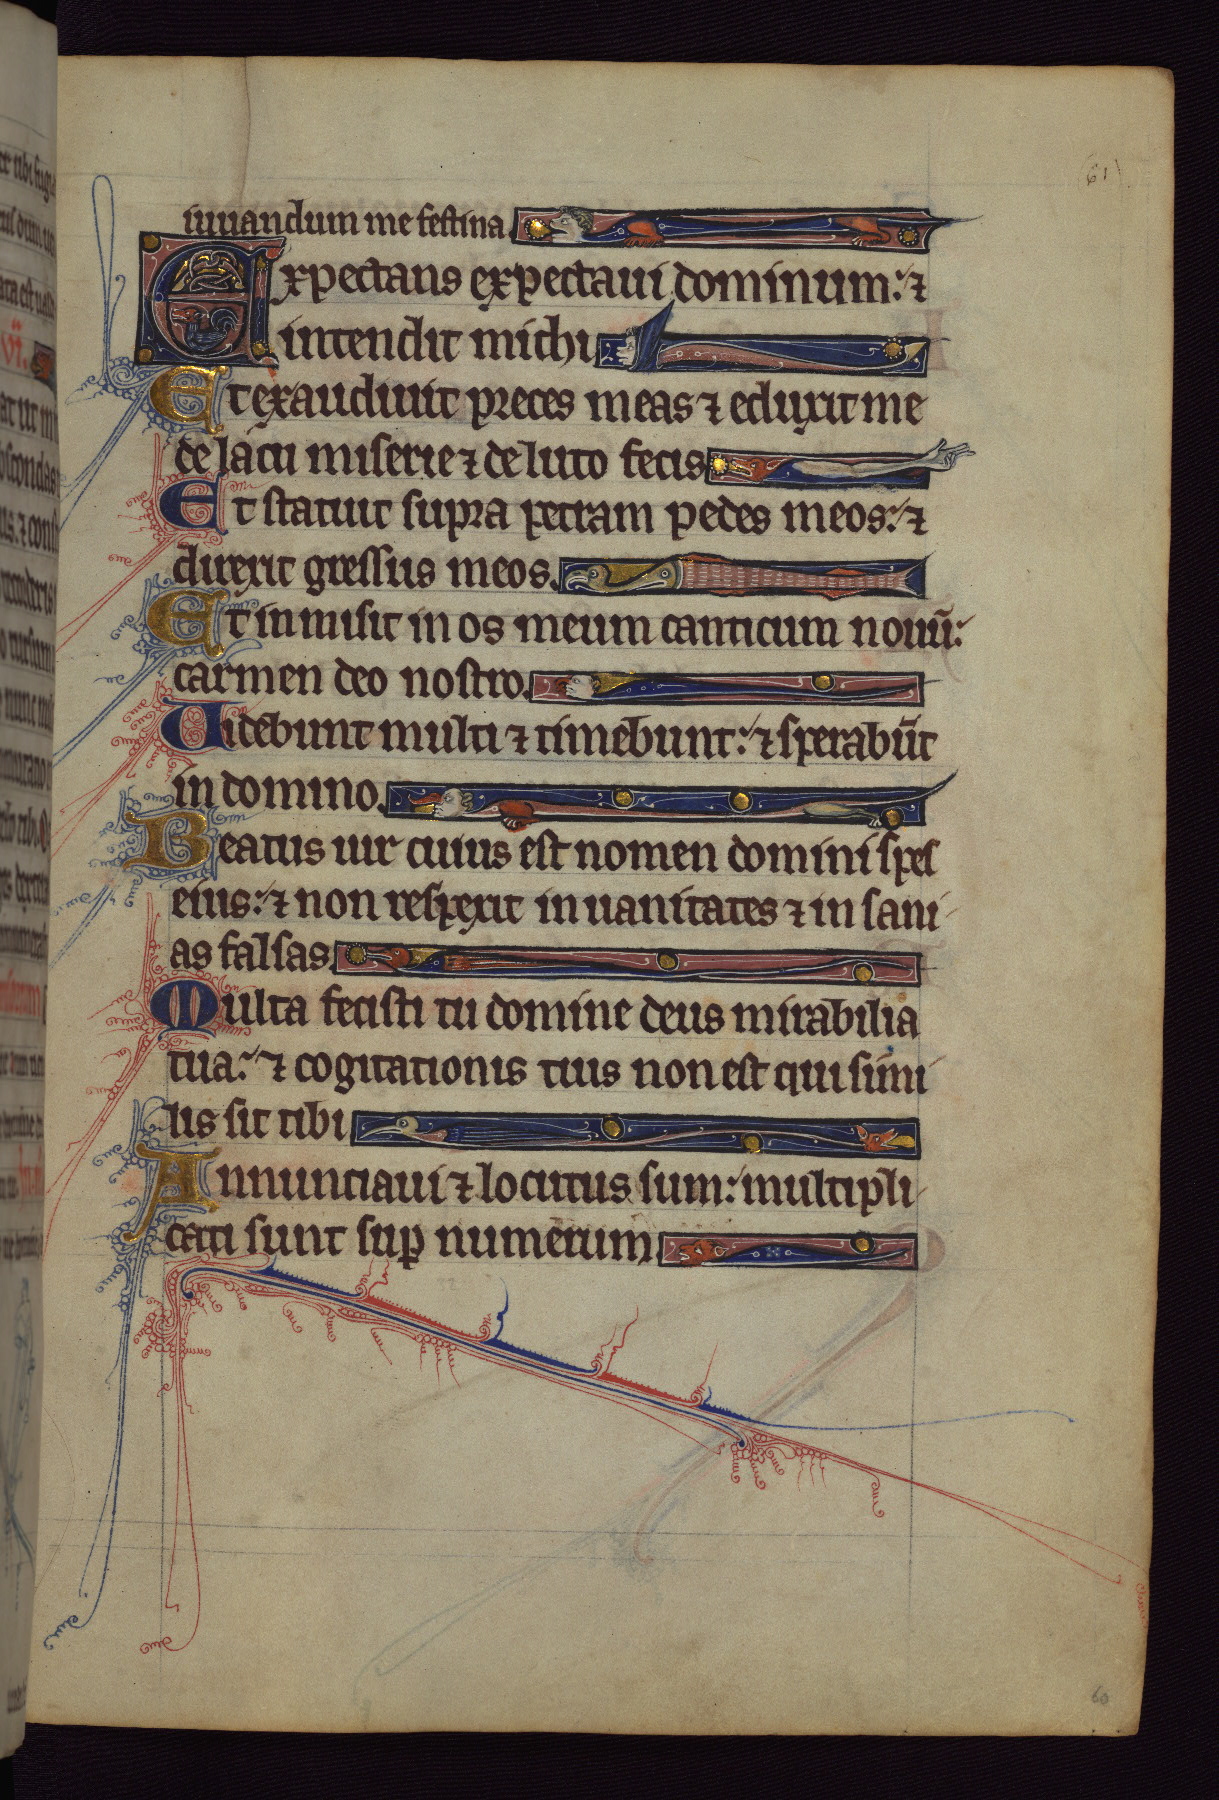 61
iuuandum me festina
Expectans expectaui dominum: ⁊
intendit michi
Et exaudiuit preces meas ⁊ eduxit me
de lacu miserie ⁊ de luto fecis
Et statuit supra petram pedes meos: ⁊
direxit gressus meos.
Et inmisit in os meum canticum nouū:
carmen deo nostro.
Uidebunt multi ⁊ timebunt: ⁊ sperabūt
in domino.
Beatus uir cuius est nomen domini spes
eius: ⁊ non respexit in uanitates ⁊ in sani
as falsas.
Multa fecisti tu domine deus mirabilia
tua: ⁊ cogitationis tuis non est qui simi
lis sit tibi
Annunciaui ⁊ locutus sum: multipli
cati sunt suꝑ numerum
60